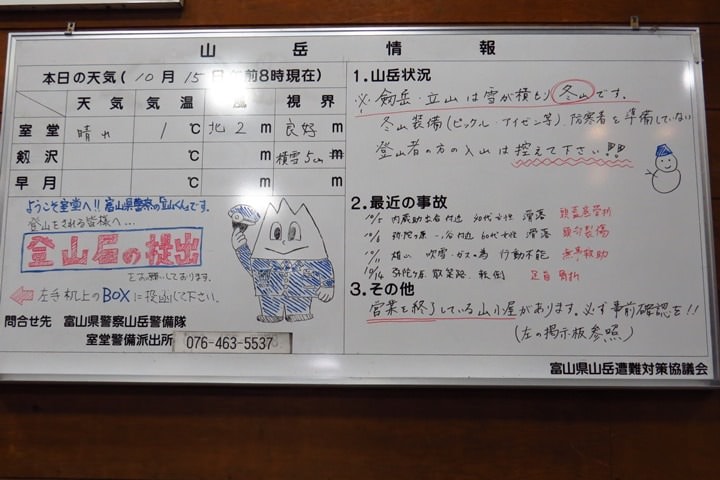 山岳情報
本日の天気(10月15日午前8時現在)
天気 気温 風 視界
室堂 晴れ 1℃ 北2m 良好m
剱沢 ℃ m 積雪5cm m
早月 ℃ m m
ようこそ室堂へ!! 富山県警察の立山くんです。
登山をされる皆様へ…
登山届の提出
をお願いしております。
左手机上のBOXに投函して下さい。
問合せ先 富山県警察山岳警備隊
室堂警備派出所 076-463-5537
1.山岳状況
※ 剱岳・立山は雪が積もり冬山です。
冬山装備(ピッケル・アイゼン等)、防寒着を準備していない
登山者の方の入山は控えて下さい!!!
2.最近の事故
10/5 内蔵助出合付近 60代女性 滑落
10/6 弥陀ヶ原 付近 60代女性 滑落 頭部裂傷
10/11 雄山 吹雪・ガスの為 行動不能 無事救助
10/14 弥陀ヶ原 散策路 転倒 足首骨折
3.その他
営業を終了している山小屋があります。必ず事前確認を!!
(左の掲示板参照)
富山県山岳遭難対策協議会